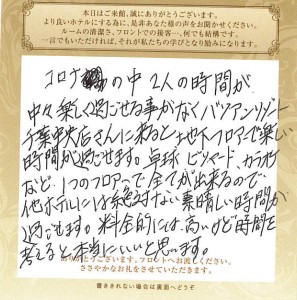 本日はご来館、誠にありがとうございます。
より良いホテルにする為に、是非あなた様の声をお聞かせください。
ルームの清潔さ、フロントでの接客…、何でも結構です。
一言でもいただければ、それが私たちの学びとなり励みになります。
コロナ の中 2人の時間が
中々楽しく過ごせる事がなくバリアンリゾート
千葉中央店さんに来ると地下フロアーで楽しい
時間が過ごせます。卓球 ビリヤード、カラオケ
など、1つのフロアーで全てが出来るので
他ホテルには絶対ない素晴しい時間が
過ごせます。料金的には、高いけど時間を
考えると本当にいいと思います。
ありがとうございます。フロントへお渡しください。
ささやかなお礼をさせていただきます。
書ききれない場合は裏面へどうぞ